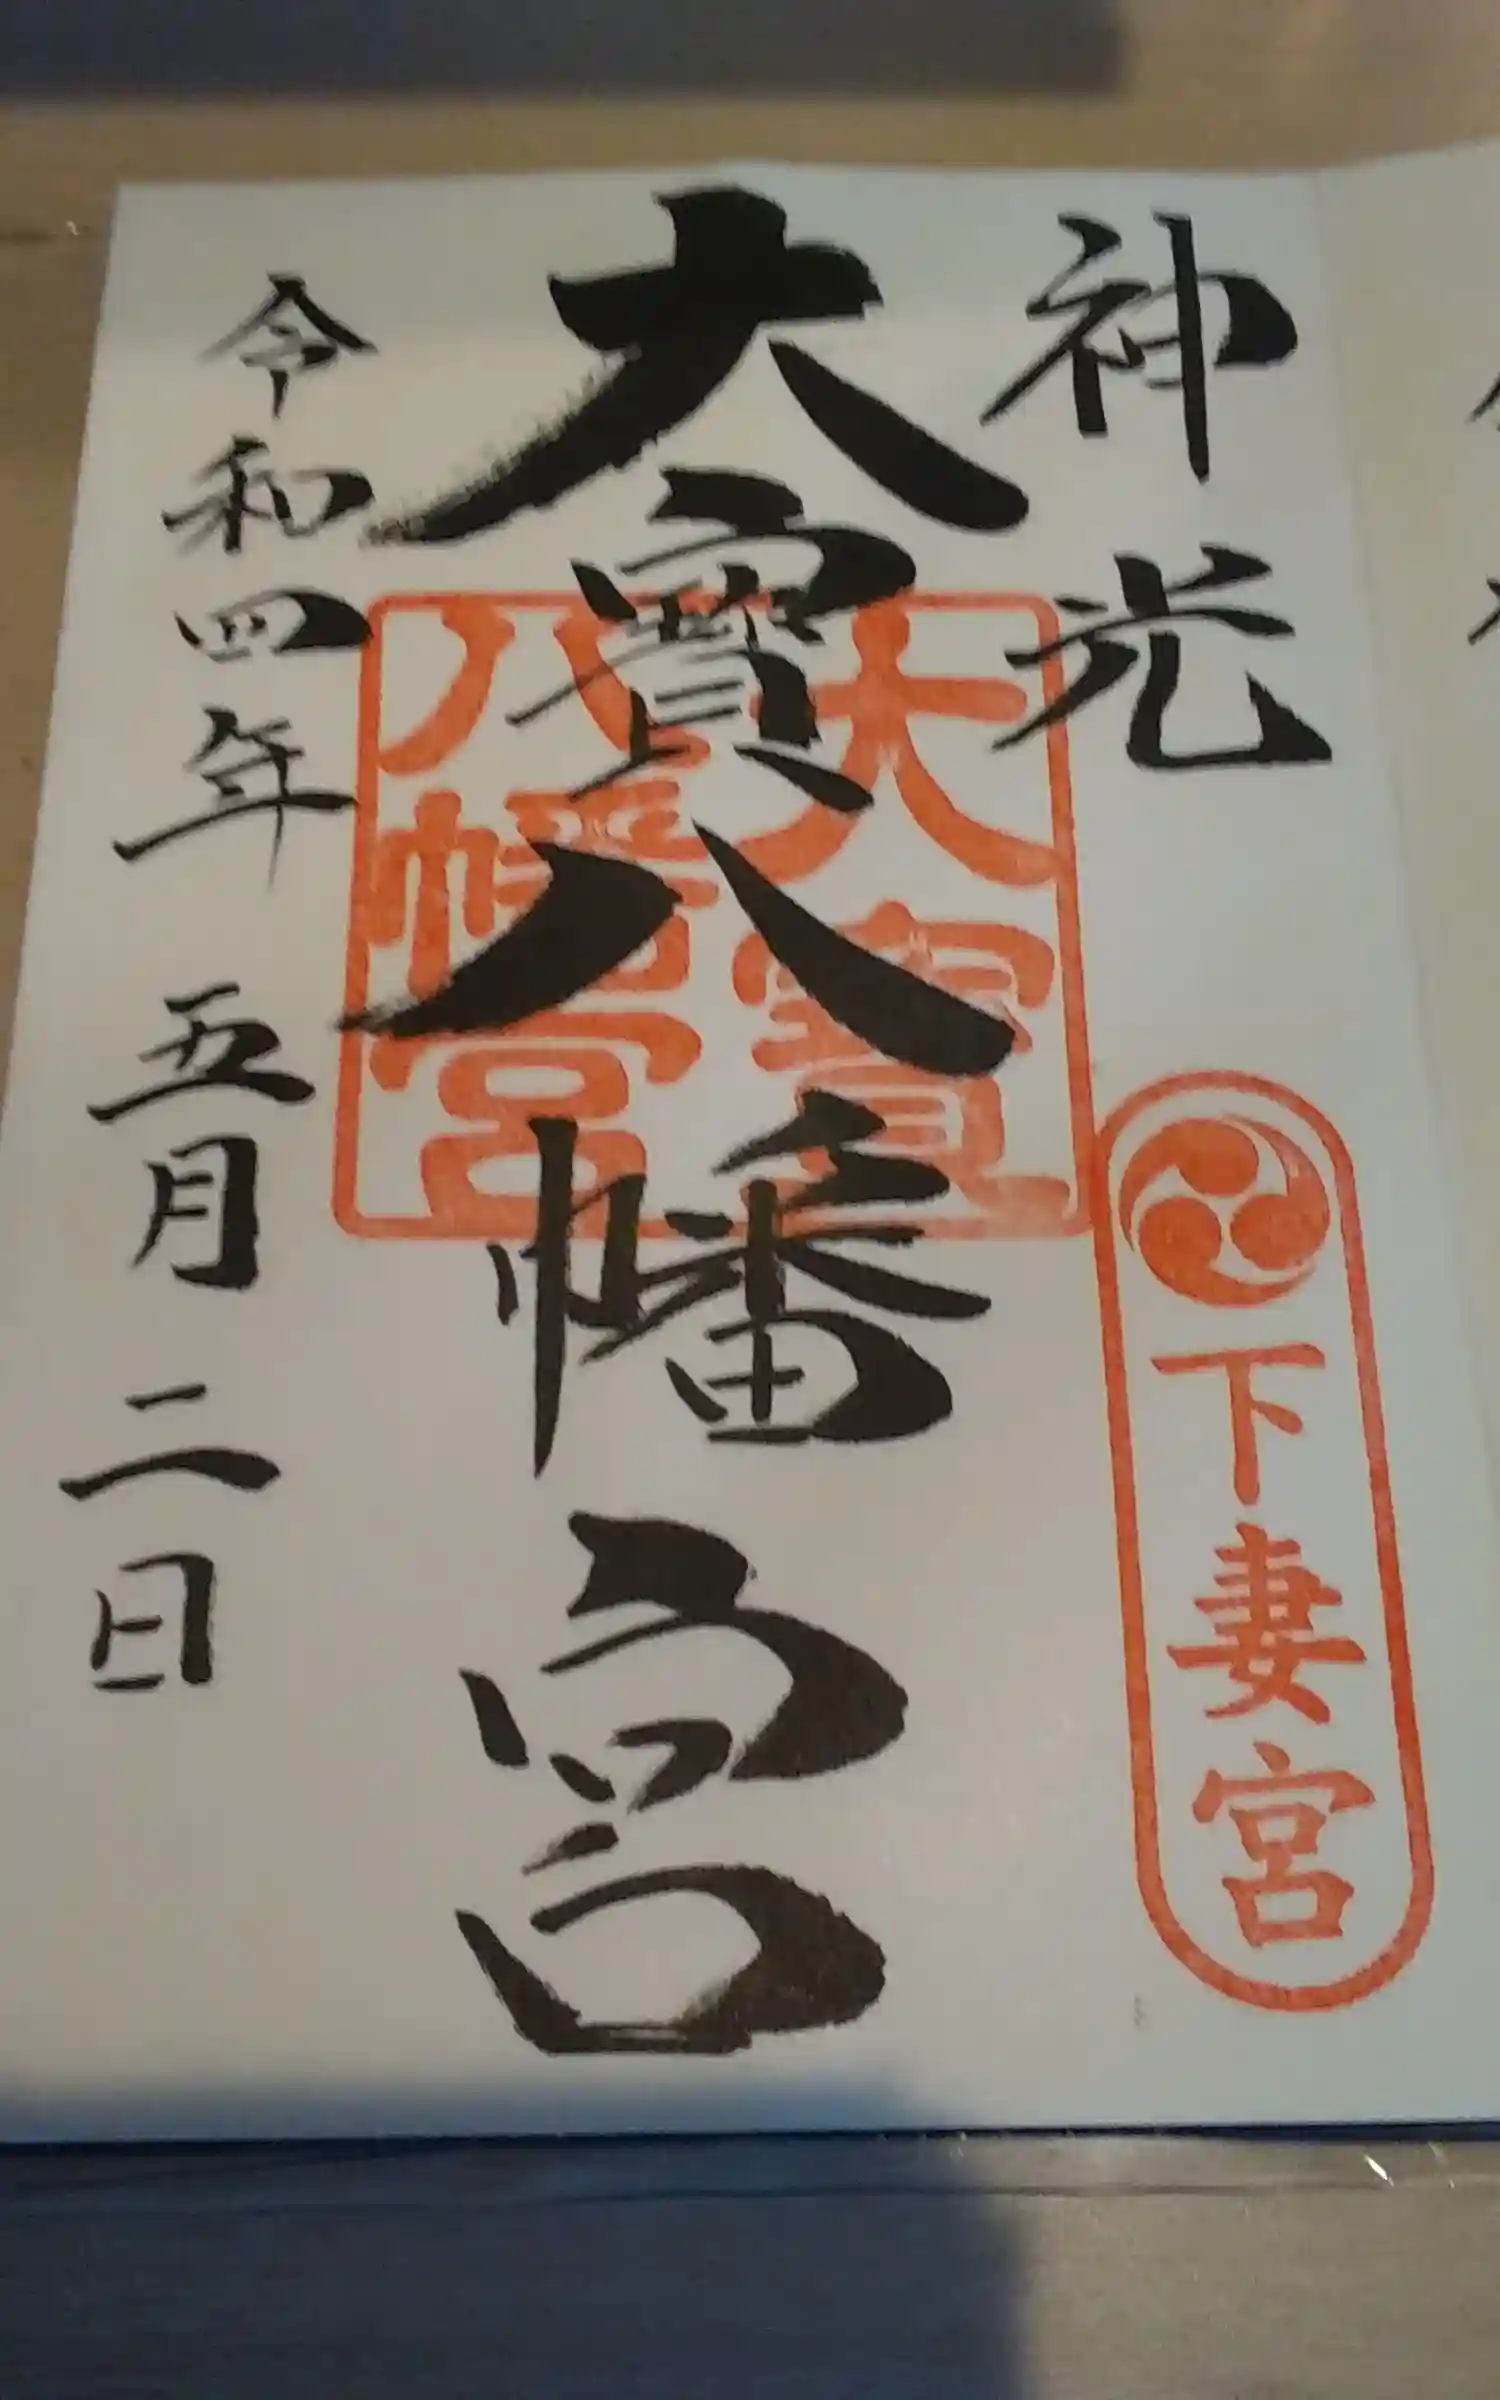 神光
下妻宮
大寳八幡宮
大寳
八幡宮
令和四年五月二日